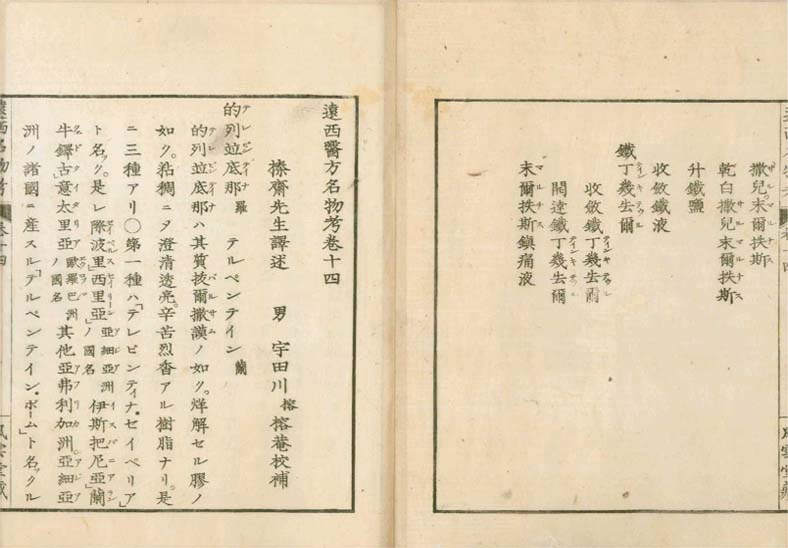 撒兒末爾抜斯
乾白撒兒末爾抜斯
升鐵鹽
收斂鐵液
鐵丁幾去爾
收斂鐵丁幾去爾
閣達鐵丁幾去爾
末爾抜斯鎭痛液
遠西醫方名物考卷十四
榛齋先生譯述 男 宇田川榕 榕菴校補
的列並底那 羅 テルペンテイン 蘭
的列並底那ハ其質抜爾撒謨ノ如ク。烊解セル膠ノ
如ク。粘稠ニヲ澄清透亮。辛苦烈香アル樹脂ナリ。是
ニ三種アリ〇第一種ハ「テレビンティナ。セイペリア」
ト名ック。是レ際波里西里亞 亞細亞洲ノ國名 伊斯把尼亞「蘭
牛鐸古」意太里亞 歐羅巴洲ノ國名 其他亞弗利加洲。亞細亞
洲ノ諸國ニ産スル「テルペンテイン。ボーム」ト名ックル